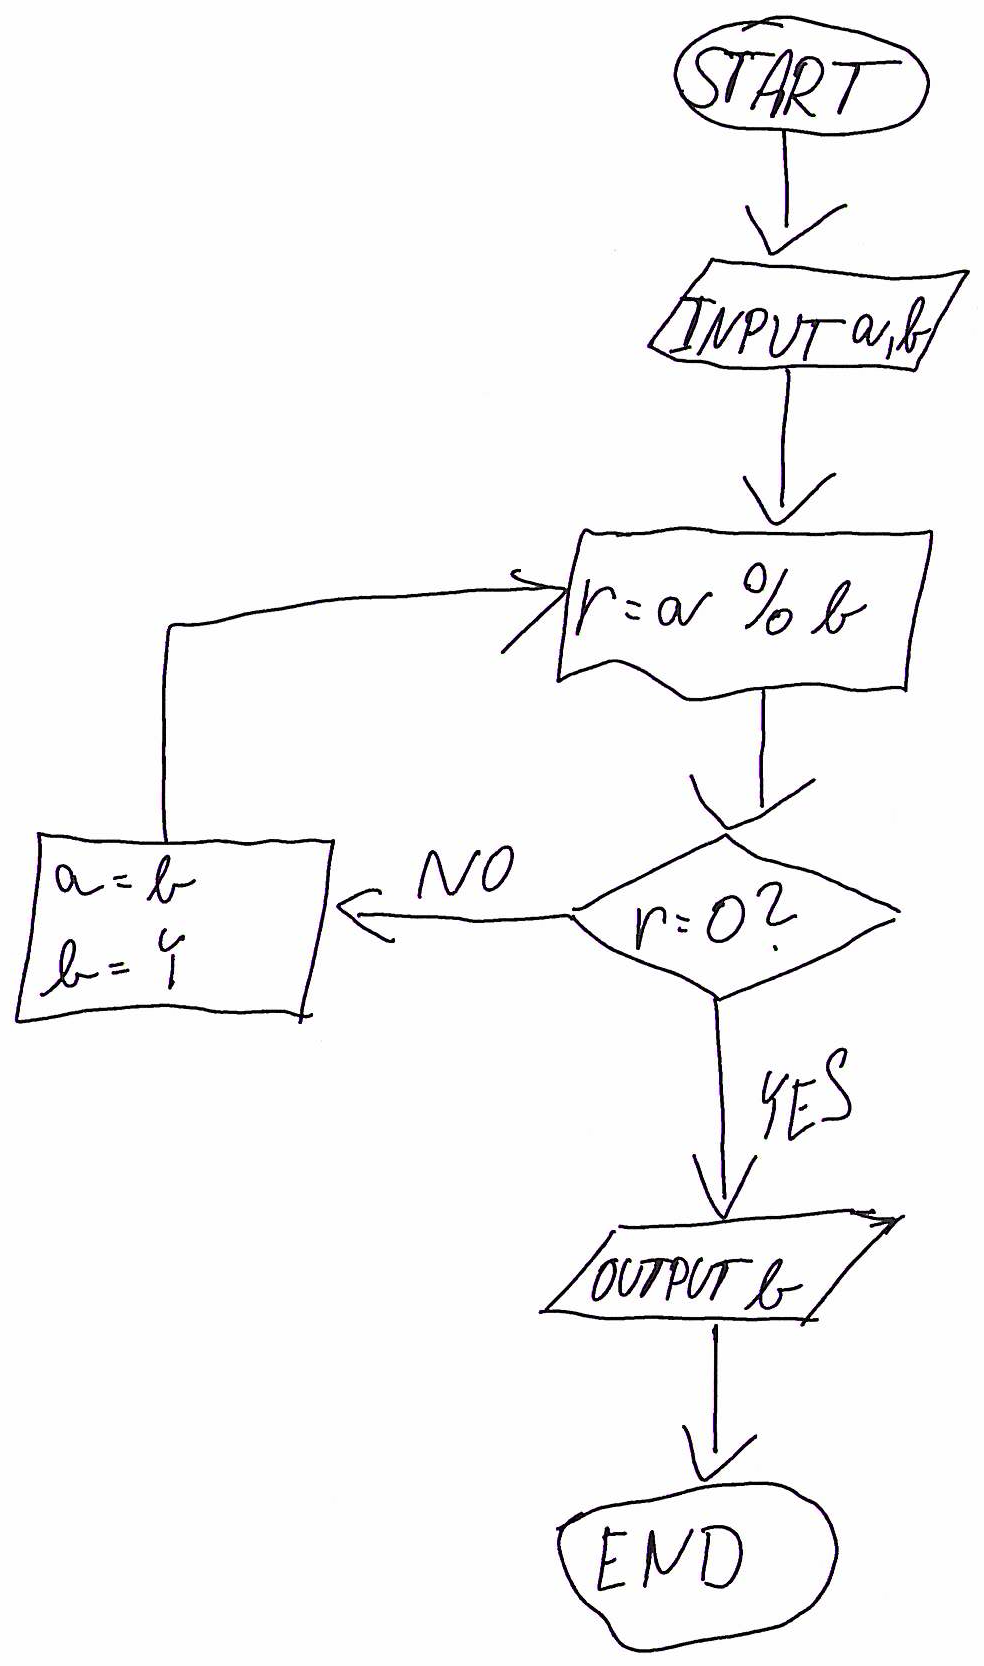 START
INPUT a,b
r=a % b
r=0?
NO
a=b
b=r
YES
OUTPUT b
END